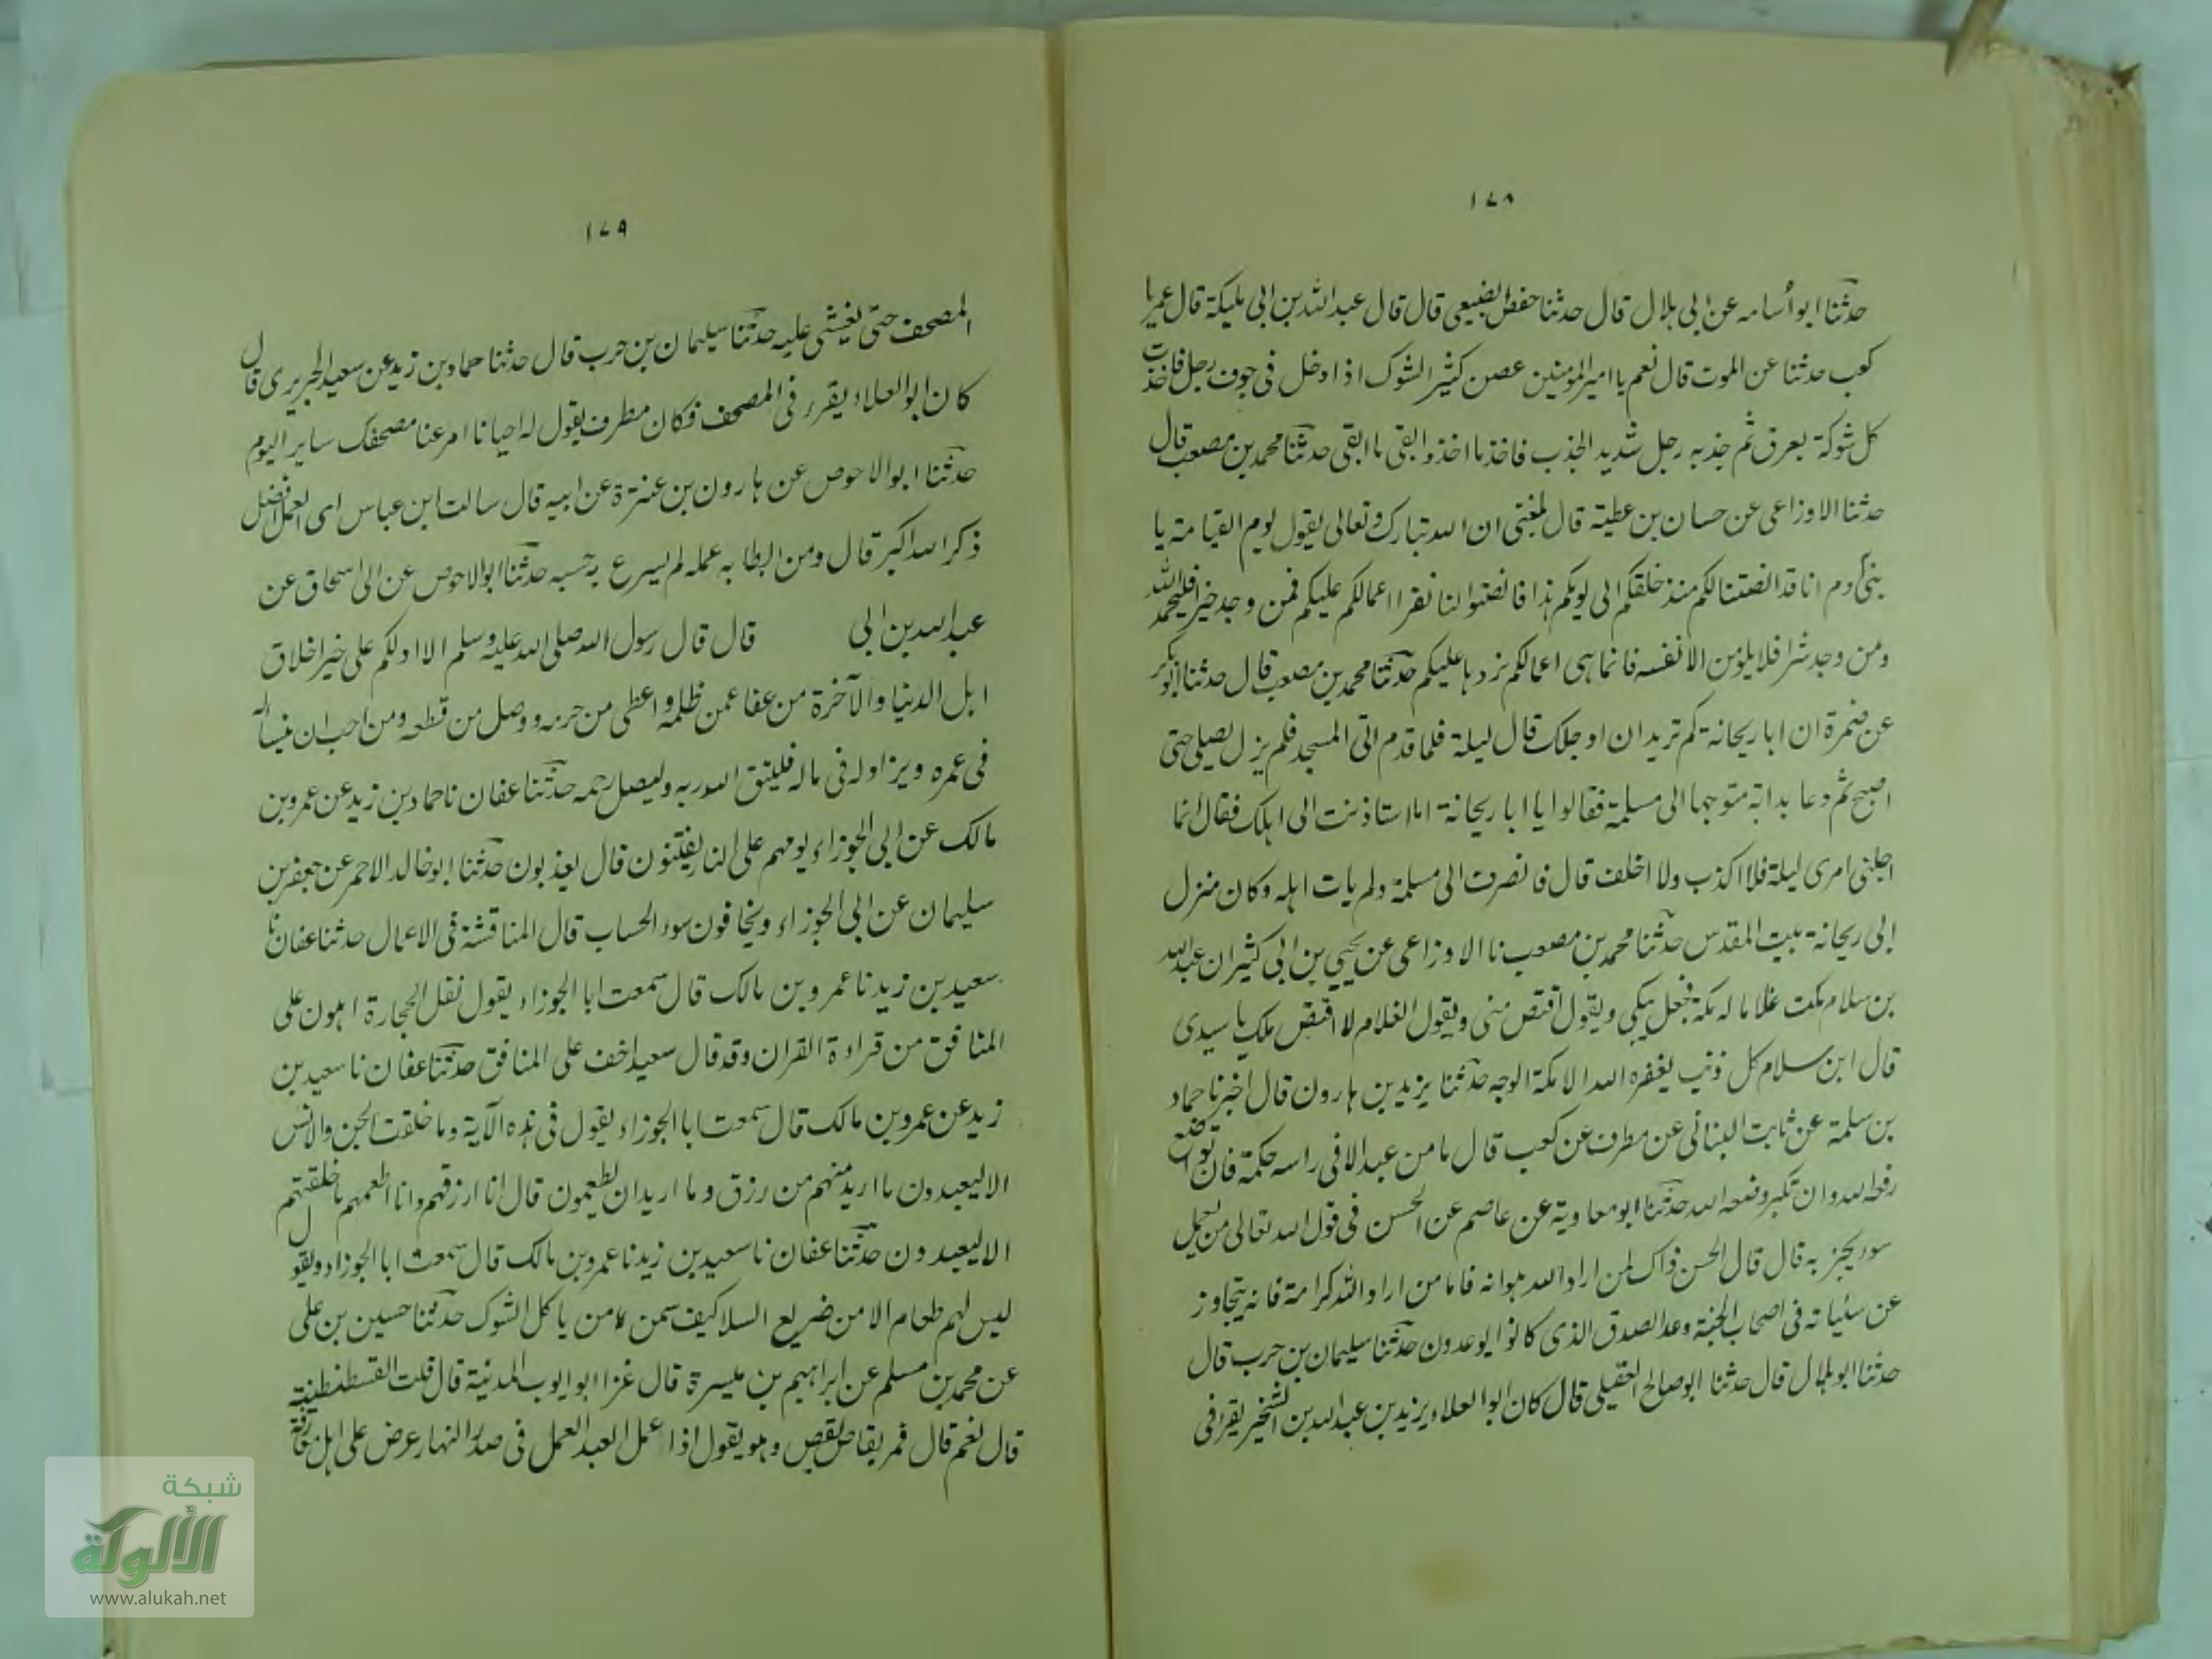 ١٧٨
حدثنا ابو أسامه عن ابى هلال قال حدثنا حفص الضبيعى قال قال عبد الله بن ابى مليكة قال عمر يا
كعب حدثنا عن الموت قال نعم يا امير المومنين غصن كثير الشوك اذا دخل فى جوف رجل فاخذت
كل شوكة بعرق ثم جذبه رجل شديد الجذب فاخذ ما اخذ وابقى ما ابقى حدثنا محمد بن مصعب قال
حدثنا الاوزاعى عن حسان بن عطية قال بلغنى ان الله تبارك وتعالى يقول يوم القيامة يا
بنى آدم انا قد انصتنا لكم منذ خلقتكم الى يومكم هذا فانصتوا لنا نقرا اعمالكم عليكم فمن وجد خيرا فليحمد الله
ومن وجد شرا فلا يلومن الا نفسه فانما هى اعمالكم نردها عليكم حدثنا محمد بن مصعب قال حدثنا ابو بكر
عن ضمرة ان ابا ريحانة كم تريد ان اوجلك قال ليلة فلما قدم اتى المسجد فلم يزل يصلى حتى
اصبح ثم دعا بدابة متوجها الى مسلمة فقالوا يا ابا ريحانة اما استاذنت الى اهلك فقال انما
اجلنى امرى ليلة فلا اكذب ولا اخلف قال فانصرف الى مسلمة ولم يات اهله وكان منزل
ابى ريحانة بيت المقدس حدثنا محمد بن مصعب نا الاوزاعى عن يحيى بن ابى كثير ان عبد الله
بن سلام صكت غلاما له صكة فجعل يبكى ويقول اقتص منى ويقول الغلام لا اقتص منك يا سيدى
قال ابن سلام كل ذنب يغفره الله الا صكة الوجه حدثنا يزيد بن هارون قال اخبرنا حماد
بن سلمة عن ثابت البنانى عن مطرف عن كعب قال ما من عبد الا فى راسه حكمة فان تواضع
رفعه الله وان تكبر وضعه الله حدثنا ابو معاوية عن عاصم عن الحسن فى قول الله تعالى من يعمل
سوء يجز به قال قال الحسن ذاك لمن اراد الله هوانه فاما من اراد الله كرامة فانه يتجاوز
عن سئياته فى اصحاب الجنة وعد الصدق الذى كانوا يوعدون حدثنا سليمان بن حرب قال
حدثنا ابو هلال قال حدثنا ابو صالح العقيلى قال كان ابو العلاء يزيد بن عبد الله بن الشخير يقرء فى
١٧٩
المصحف حتى يغشى عليه حدثنا سليمان بن حرب قال حدثنا حماد بن زيد عن سعيد الجريرى قال
كان ابو العلاء يقرء فى المصحف فكان مطرف يقول له احيانا امر عنا مصحفك ساير اليوم
حدثنا ابو الاحوص عن هارون بن عنترة عن ابيه قال سالت ابن عباس اى العمل افضل
ذكر الله اكبر قال ومن ابطا به عمله لم يسرع به حسبه حدثنا ابو الاحوص عن ابى اسحاق عن
عبد الله بن ابى قال قال رسول الله صلى الله عليه وسلم الا ادلكم على خير اخلاق
اهل الدنيا والآخرة من عفا عمن ظلمه واعطى من حرمه ووصل من قطعه ومن احب ان ينسا له
فى عمره ويزاد له فى ماله فليتق الله ربه وليصل رحمه حدثنا عفان نا حماد بن زيد عن عمرو بن
مالك عن ابى الجوزاء يومهم على النار يفتنون قال يعذبون حدثنا ابو خالد الاحمر عن جعفر بن
سليمان عن ابى الجوزاء ويخافون سوء الحساب قال المناقشة فى الاعمال حدثنا عفان نا
سعيد بن زيد نا عمرو بن مالك قال سمعت ابا الجوزاء يقول نقل الحجارة اهون على
المنافق من قراءة القران وقد قال سعيد اخف على المنافق حدثنا عفان نا سعيد بن
زيد عن عمرو بن مالك قال سمعت ابا الجوزاء يقول فى هذه الآية وما خلقت الجن والانس
الا ليعبدون ما اريد منهم من رزق وما اريد ان يطعمون قال انا ارزقهم وانا اطعمهم ما خلقتهم
الا ليعبدون حدثنا عفان نا سعيد بن زيد نا عمرو بن مالك قال سمعت ابا الجوزاء ويقول
ليس لهم طعام الا من ضريع السلا كيف سمن من ياكل الشوك حدثنا حسين بن على
عن محمد بن مسلم عن ابراهيم بن ميسرة قال غزا ابو ايوب المدينة قال قلت القسطنطينة
قال نعم قال فمر بقاص يقص وهو يقول اذا عمل العبد العمل فى صدر النهار عرض على اهل
شبكة
الألوكة
www.alukah.net